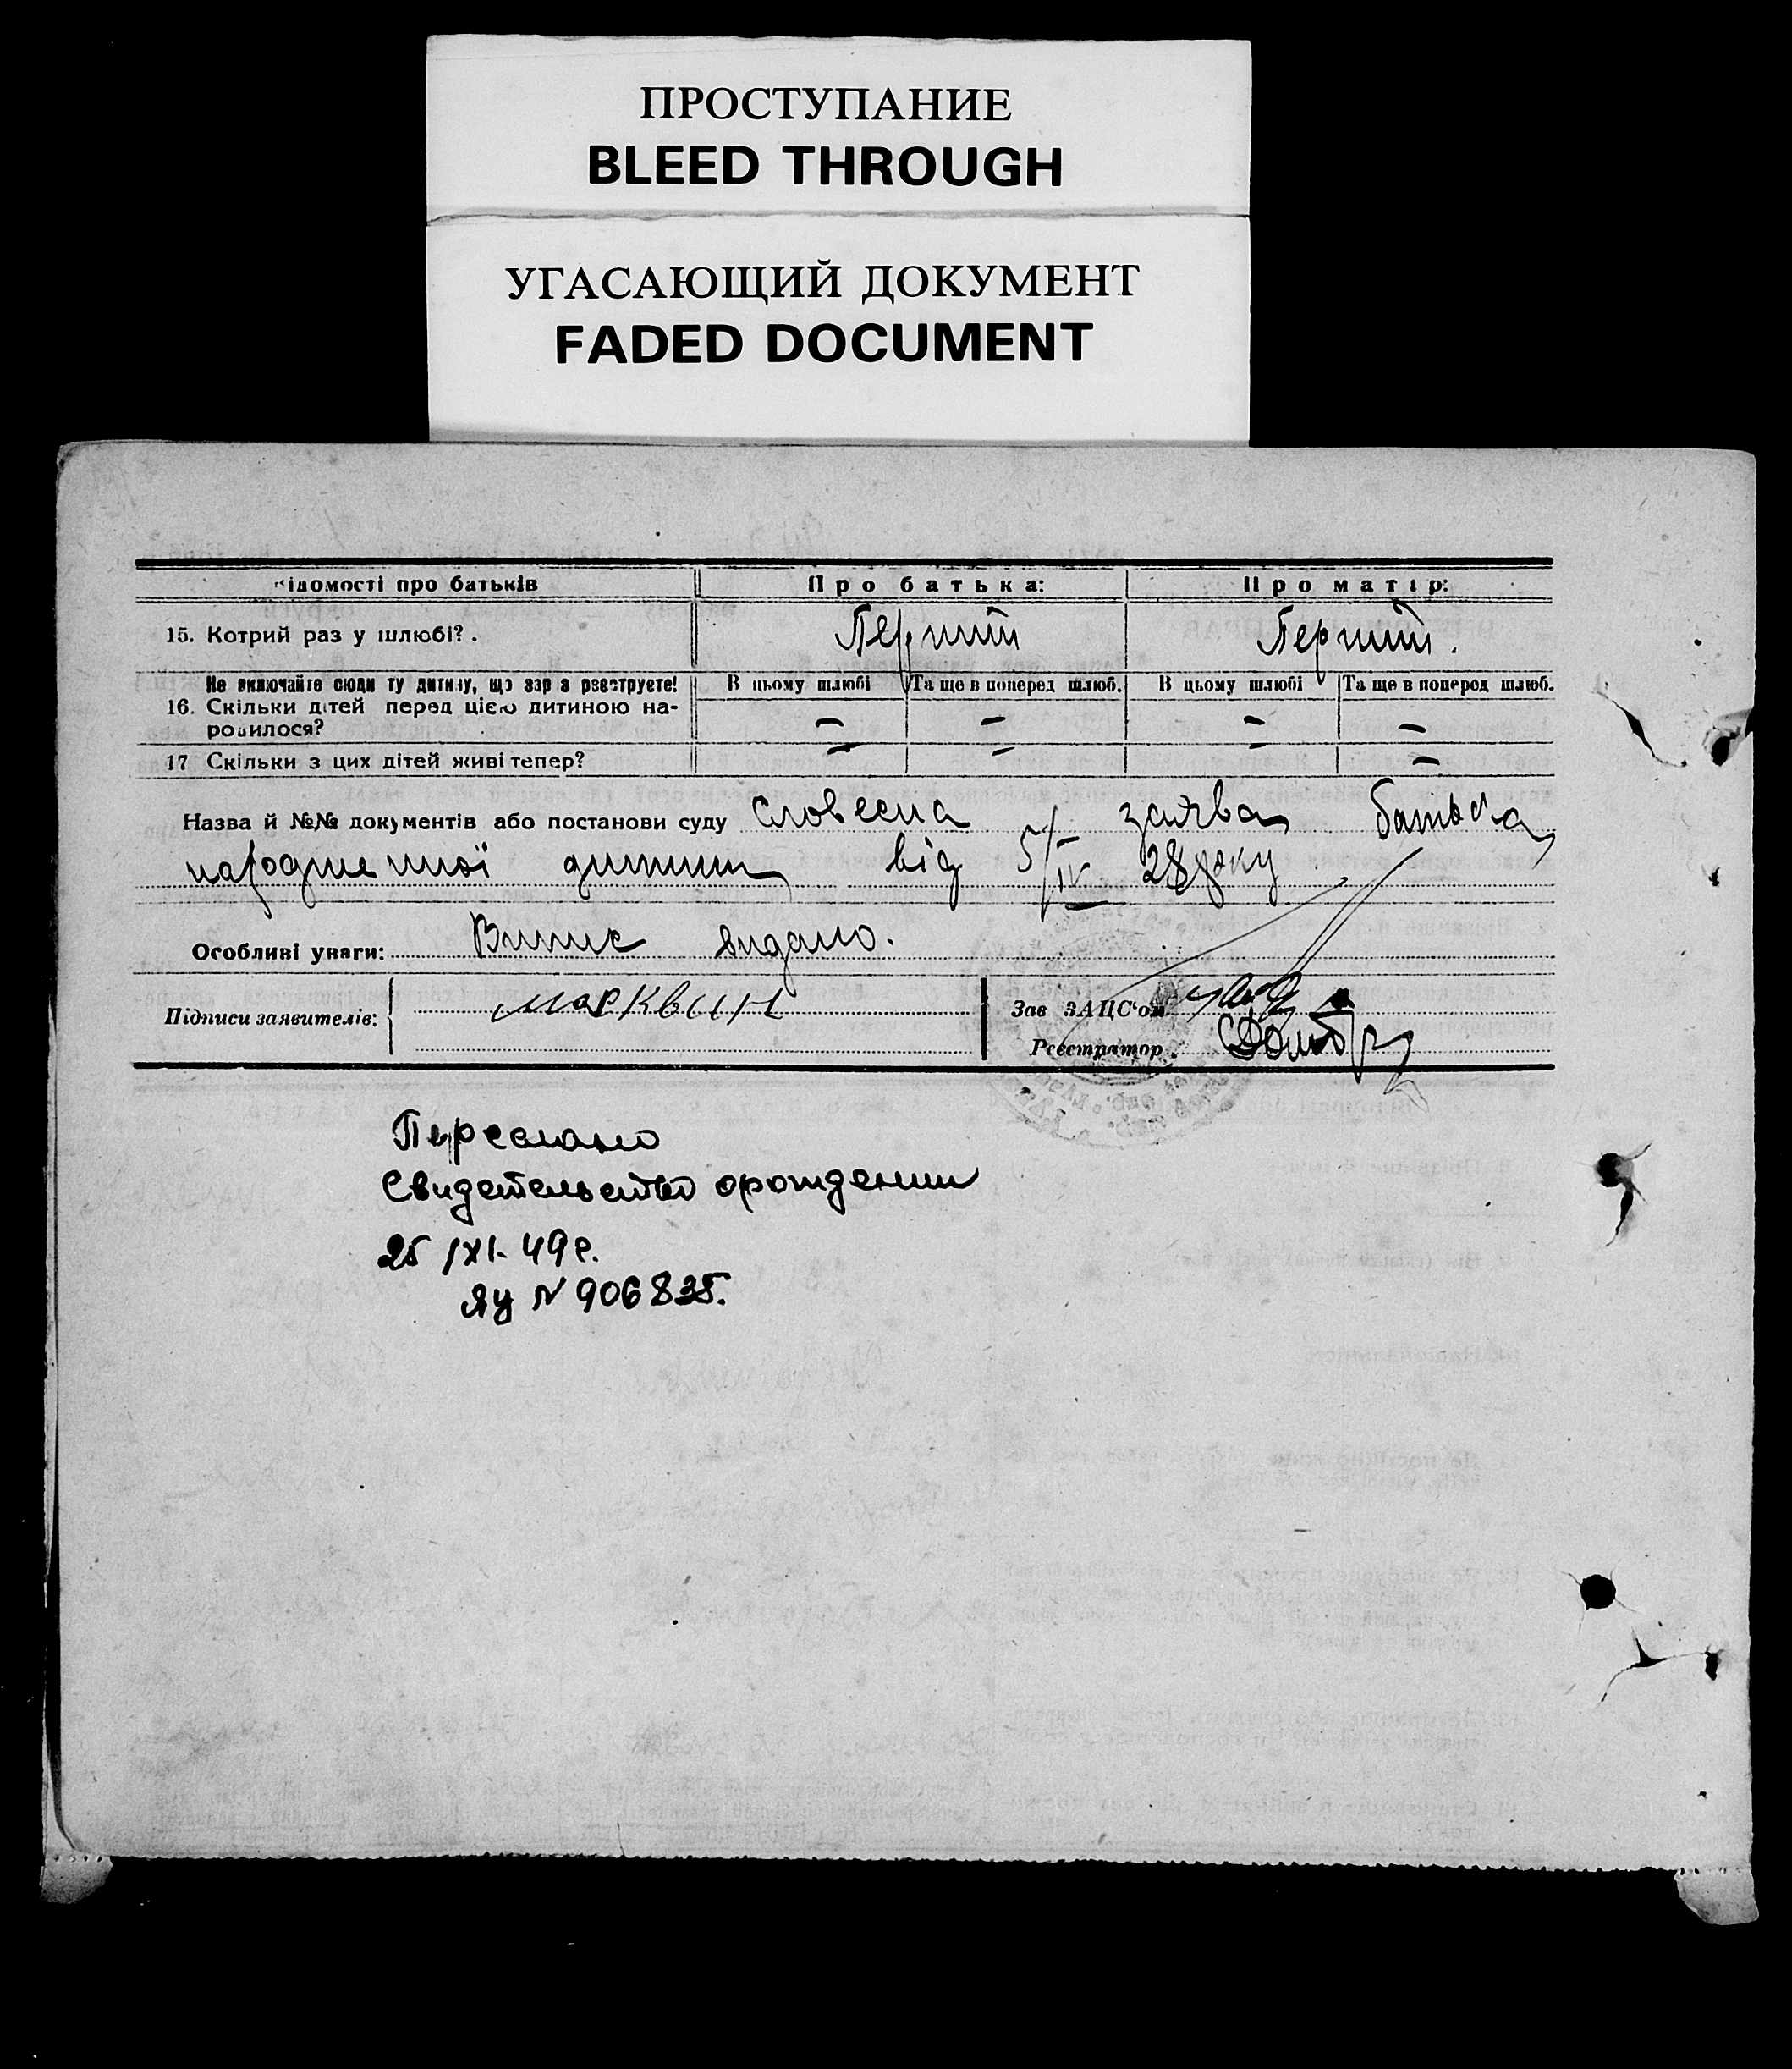 ПРОСТУПАНИЕ
BLEED THROUGH
УГАСАЮЩИЙ ДОКУМЕНТ
FADED DOCUMENT
ідомості про батьків Про батька: Про матір:
15. Котрий раз у шлюбі?. Перший Перший.
Не включайте сюди ту дитину, що зараз реєструєте! В цьому шлюбі Та ще в поперед шлюб. В цьому шлюбі Та ще в поперед шлюб.
16. Скільки дітей перед цією дитиною на-
родилося? — — — —
17 Скільки з цих дітей живі тепер? — — — —
Назва й №№ документів або постанови суду Словесна заява батька
народженної дитини від 5/IV 28 року
Особливі уваги: Витис видано.
Підписи заявителів: марквин Зав ЗАЦС'ом
Реєстратор
Переслано
Свидетельство о рождении
25/XI-49г.
ЯУ N 906835.